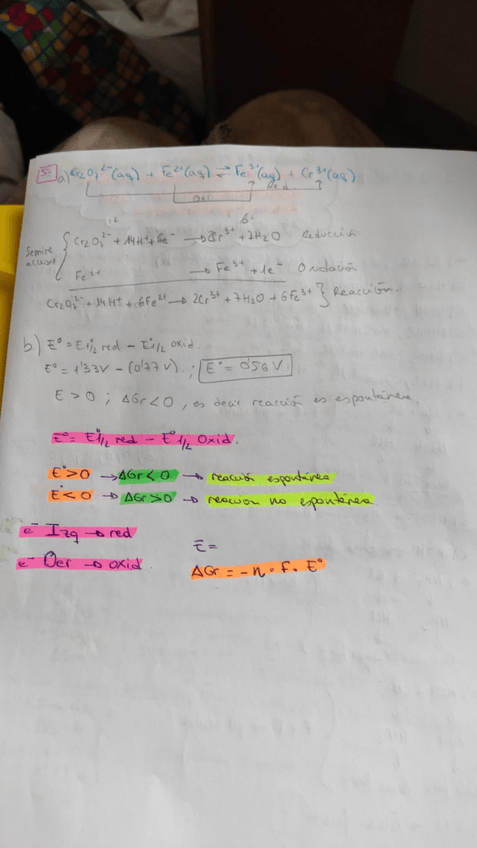 5- a) Cr2O7²⁻(aq) + Fe²⁺(aq) ⇌ Fe³⁺(aq) + Cr³⁺(aq)
Red
Oxi
Cr2O7²⁻ + 14H⁺ + 6e⁻ → 2Cr³⁺ + 7H2O Reducción
Semire
acciones
→ Fe³⁺ + 1e⁻ Oxidación
Cr2O7²⁻ + 14H⁺ + 6Fe²⁺ → 2Cr³⁺ + 7H2O + 6Fe³⁺ } Reacción.
b) E° = E°1/2 red - E°1/2 oxid.
E° = 1'33V - (0'77V) ; E° = 0'56V.
E > 0 ; ΔGr < 0, es decir reacción es espontánea.
E° = E°1/2 red - E°1/2 Oxid.
E° > 0 → ΔGr < 0 → reacción espontánea
E° < 0 → ΔGr > 0 → reacción no espontánea
e⁻ Izq → red
E =
e⁻ Der → oxid.
ΔGr = - n · F · E°